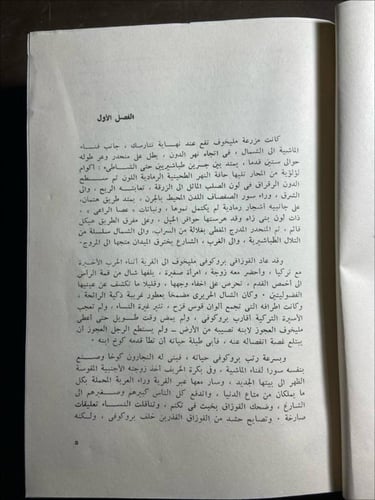 الفصل الأول
كانت مزرعة مليخوف تقع عند نهاية تتارسك، جانب فناء
الماشية الى الشمال، في اتجاه نهر الدون، يطل على منحدر وعر طوله
حوالى ستين قدما، يمتد بين جسرين طباشيريين حتى الشاطىء: أكوام
لؤلؤية من المحار تليها حافة النهر الطحينية الرمادية اللون ثم سطح
الدون الرقراق في لون الصلب المائل الى الزرقة، تعابثه الريح، والى
الشرق، وراء سور الصفصاف اللدن المحيط بالجرن، يمتد طريق هتمان،
على جانبيه أشجار رمادية لم يكتمل نموها، ونباتات «عصا الراعي»،
ذات لون بني زاه وقد هرستها حوافر الخيل، وعلى مفرق الطريق هيكل
قائم، ثم المنحدر المدرج المغطى بغلالة من السراب، والى الشمال سلسلة من
التلال الطباشيرية، والى الغرب، الشارع يخترق الميدان متجها الى المروج.
وقد عاد القوزاقي بروكوفي الى القرية أثناء الحرب الأخيرة
مع تركيا، وأحضر معه زوجة، امرأة صغيرة، يلفها شال من قمة الرأس
الى أخمص القدم، تحرص على اخفاء وجهها، وقليلا ما تكشف عن عينيها
الفضوليتين. وكان الشال الحريري مضمخا بعطور غريبة ذكية الرائحة،
وكانت أطرافه التي تجمع ألوان قوس قزح، تثير غيرة النساء، ولم تعجب
الأسيرة التركية أقارب بروكوفي، ولم يمض وقت طويل حتى أعطى
مليخوف العجوز لابنه نصيبه من الأرض — ولم يستطع الرجل العجوز أن
يبتلع غصة انفصاله عنه، فأبى طيلة حياته أن تطأ قدمه كوخ ابنه.
وبسرعة رتب بروكوفي حياته، فبنى له النجارون كوخا وصنع
بنفسه سورا لفناء الماشية، وفي بكرة الخريف أخذ زوجته الأجنبية المقوسة
الظهر الى بيتها الجديد، وسار معها عبر القرية وراء العربة المحملة بكل
ما يملكان من متاع الدنيا، واندفع كل الناس كبيرهم وصغيرهم الى
الشارع، وضحك القوزاق بخبث في تكتم، وتناقلت النساء تعليقات
صارخة. وتصايح حشد من القوزاق القذرين خلف بروكوفي، ولكنه
٥